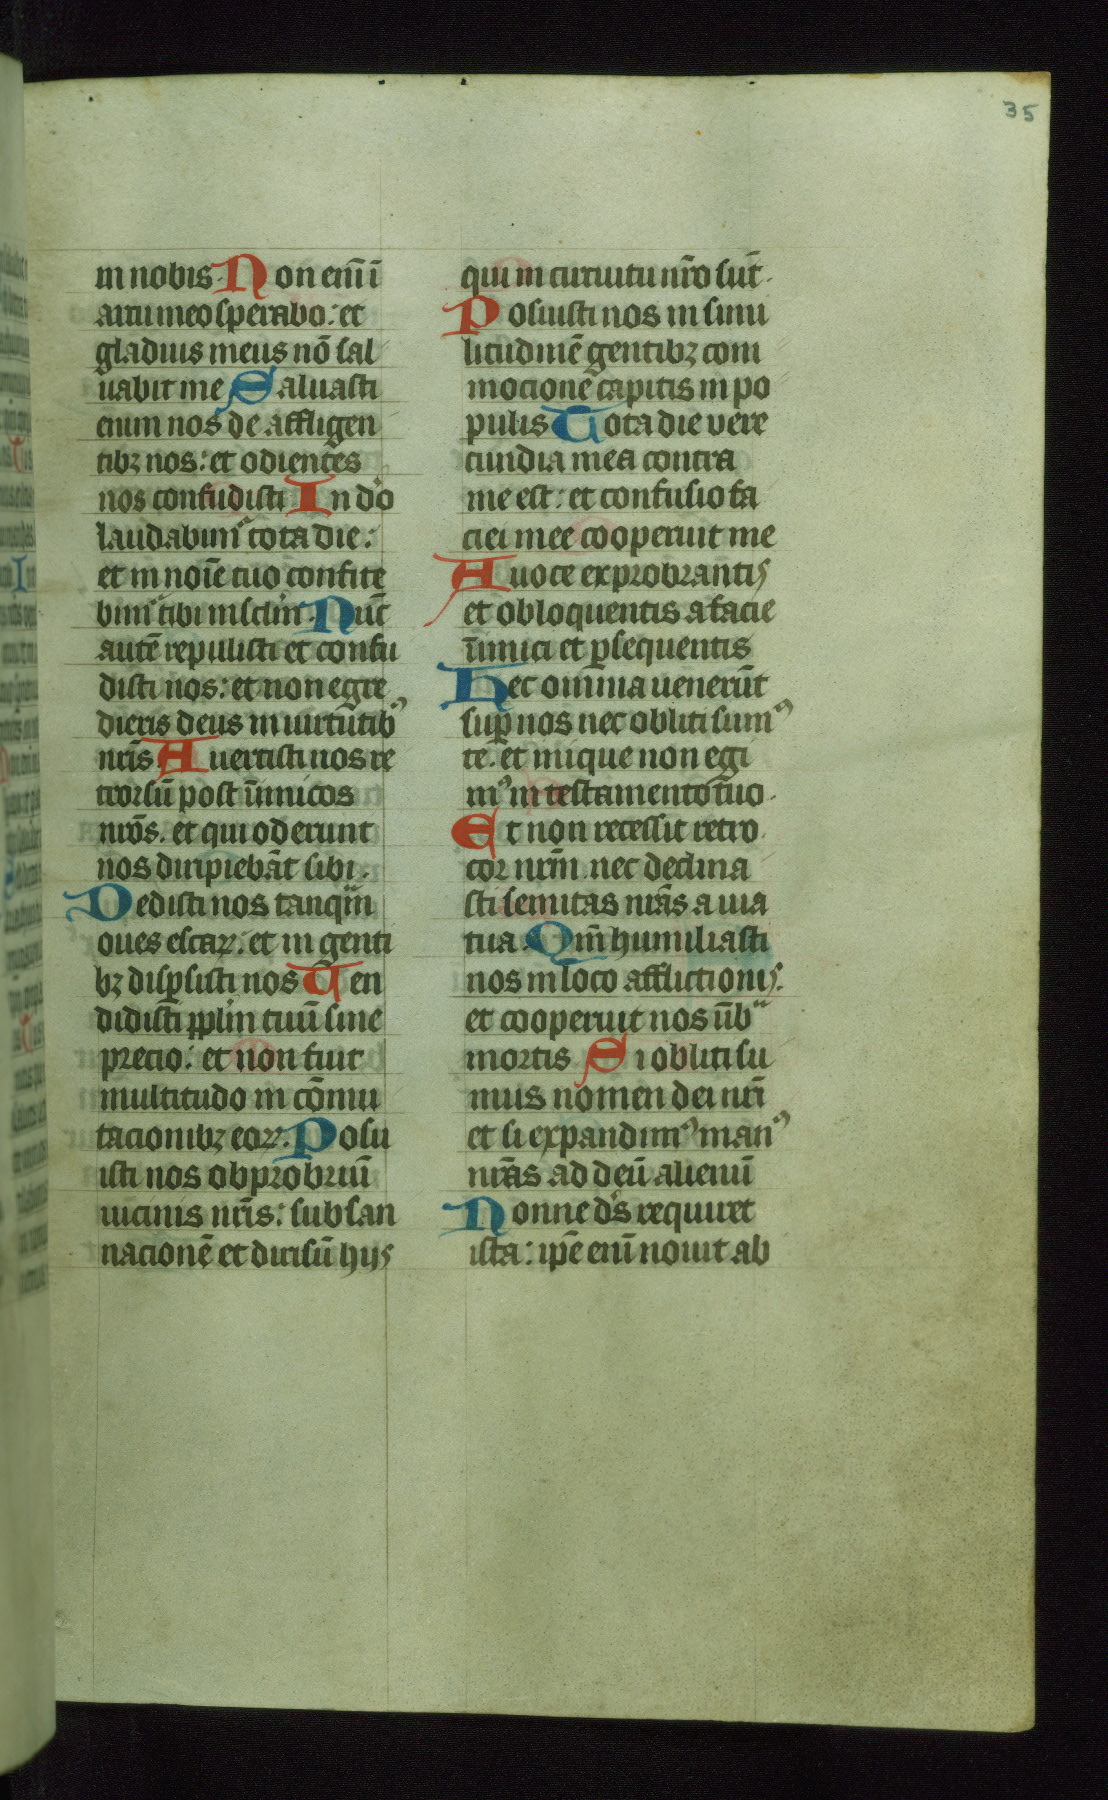 35
in nobis. Non eni̅ ı̅
arcu meo sperabo: et
gladius meus no̅ sal
uabit me Saluasti
enim nos de affligen
tibꝫ nos: et odientes
nos confudisti In do̅
laudabimꝰ tota die:
et in noı̅e tuo confite
bimꝰ tibi in sclm̅. Nuc̅
aute̅ repulisti et confu
disti nos: et non egre
dieris deus in uirtutibꝰ
nr̅is Auertisti nos re
trorsu̅ post inimicos
nr̅os. et qui oderunt
nos diripieba̅t sibi.
Dedisti nos tanqm̅
oues escaꝝ. et in genti
bꝫ disꝑsisti nos Uen
didisti pplm̅ tuu̅ sine
precio: et non fuit
multitudo in co̅mu
tacionibꝫ eoꝝ. Posu
isti nos obprobriu̅
uicinis nr̅is: subsan
nacione̅ et dirisu̅ hijs
qui in curuitu nr̅o su̅t.
Posuisti nos in simi
litudine̅ gentibꝫ com
mocione̅ capitis in po
pulis Tota die vere
cundia mea contra
me est: et confusio fa
ciei mee cooperuit me
A uoce exprobrantis
et obloquentis a facie
inimici et ꝑsequentis
Hec omnia ueneru̅t
suꝑ nos nec obliti sumꝰ
te. et inique non egi
mꝰ in testamento tuo.
Et non recessit retro
cor nrm̅. nec declina
sti semitas nr̅as a uia
tua. Qm̅ humiliasti
nos in loco afflictionis:
et cooperuit nos u̅bᵃ
mortis Si obliti su
mus nomen dei nr̅i
et si expandimꝰ manꝰ
nr̅as ad deu̅ alienu̅
Nonne ds̅ requiret
ista: ip̅e eni̅ nouit ab